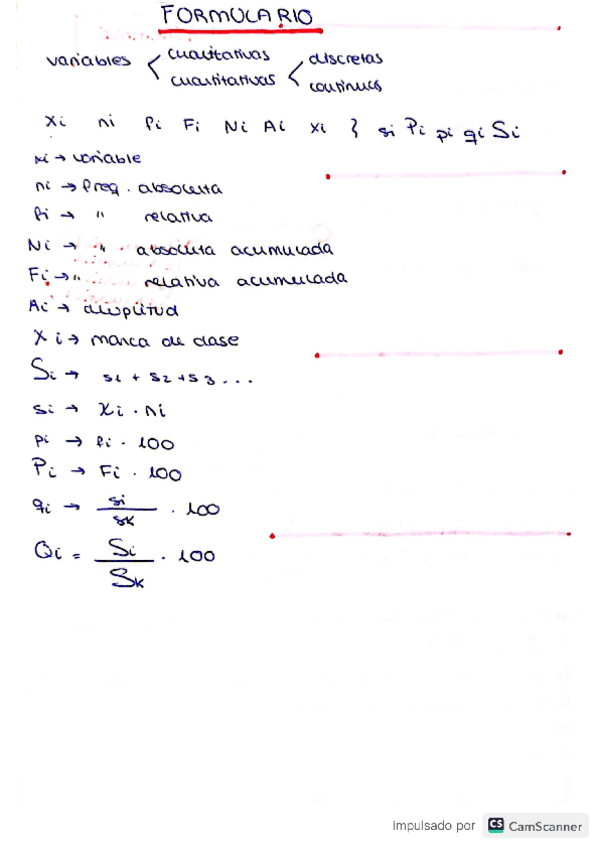 FORMULARIO
variables < cualitativas
cuantitativas < discretas
continuas
Xi ni fi Fi Ni Ai xi } si Pi pi qi Si
xi → variable
ni → freq. absoluta
fi → " relativa
Ni → " absoluta acumulada
Fi → " relativa acumulada
Ai → amplitud
Xi → marca de clase
Si → s1 + s2 + s3 ...
si → Xi · ni
pi → fi · 100
Pi → Fi · 100
qi → si / sk · 100
Qi = Si / Sk · 100
Impulsado por CS CamScanner